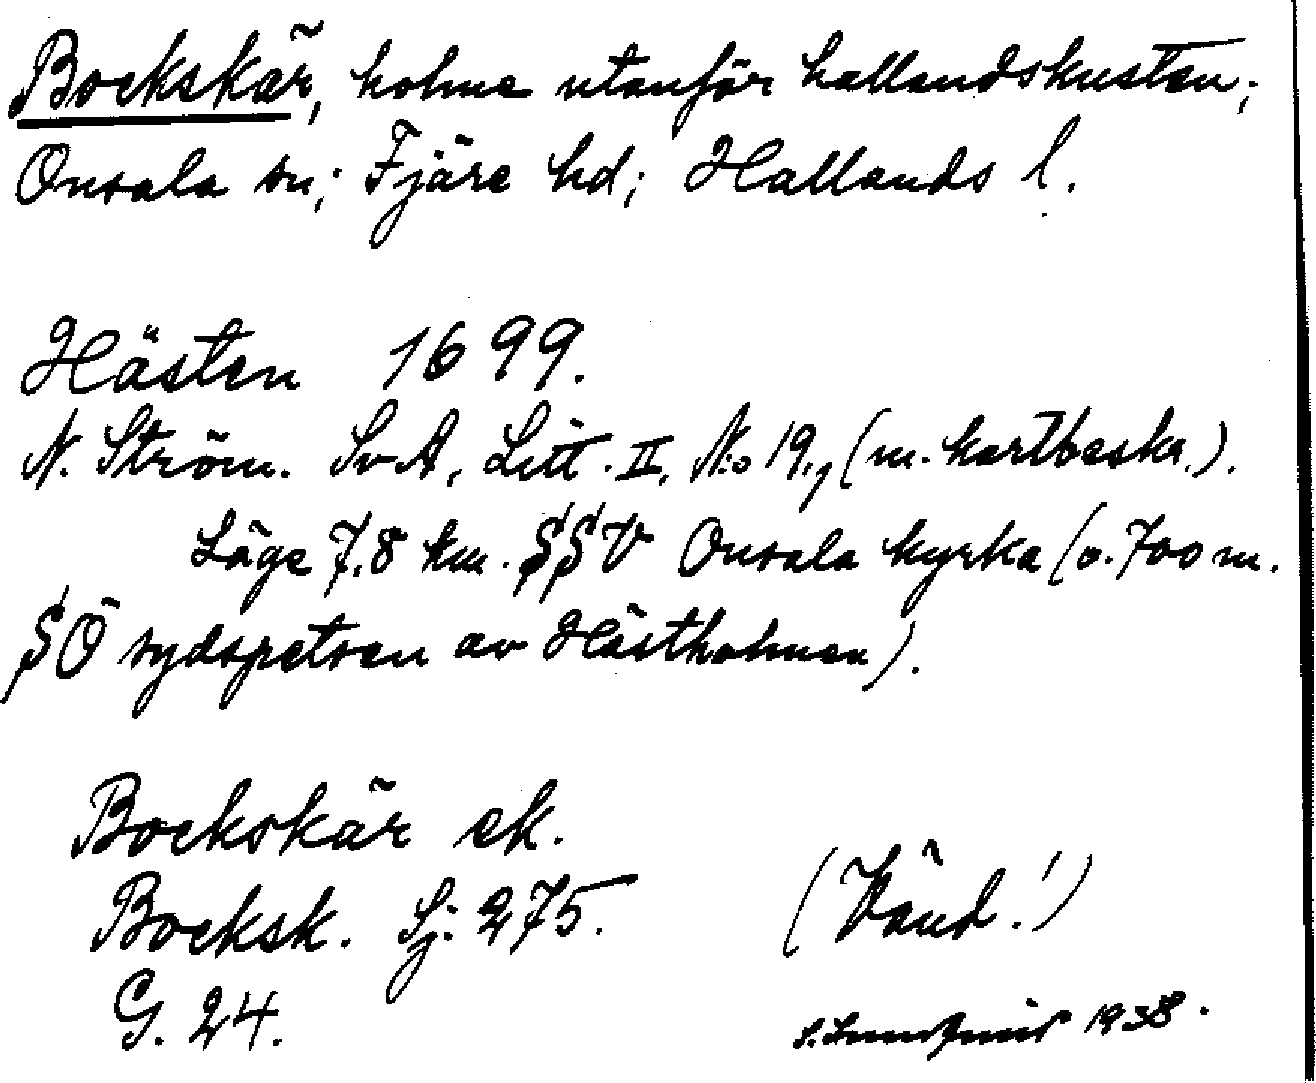 Bockskär, holme utanför hallandskusten;
Onsala sn; Fjäre hd; Hallands l.
Hästen 1699.
N. Ström. SvA, Litt. II, No 19, (m. kartbeskr.).
Läge 7,8 km. SSV Onsala kyrka (o. 700 m.
SÖ sydspetsen av Hästholmen).
Bockskär ek.
Bocksk. Sj. 275.
(Vänd!)
G. 24.
1938.